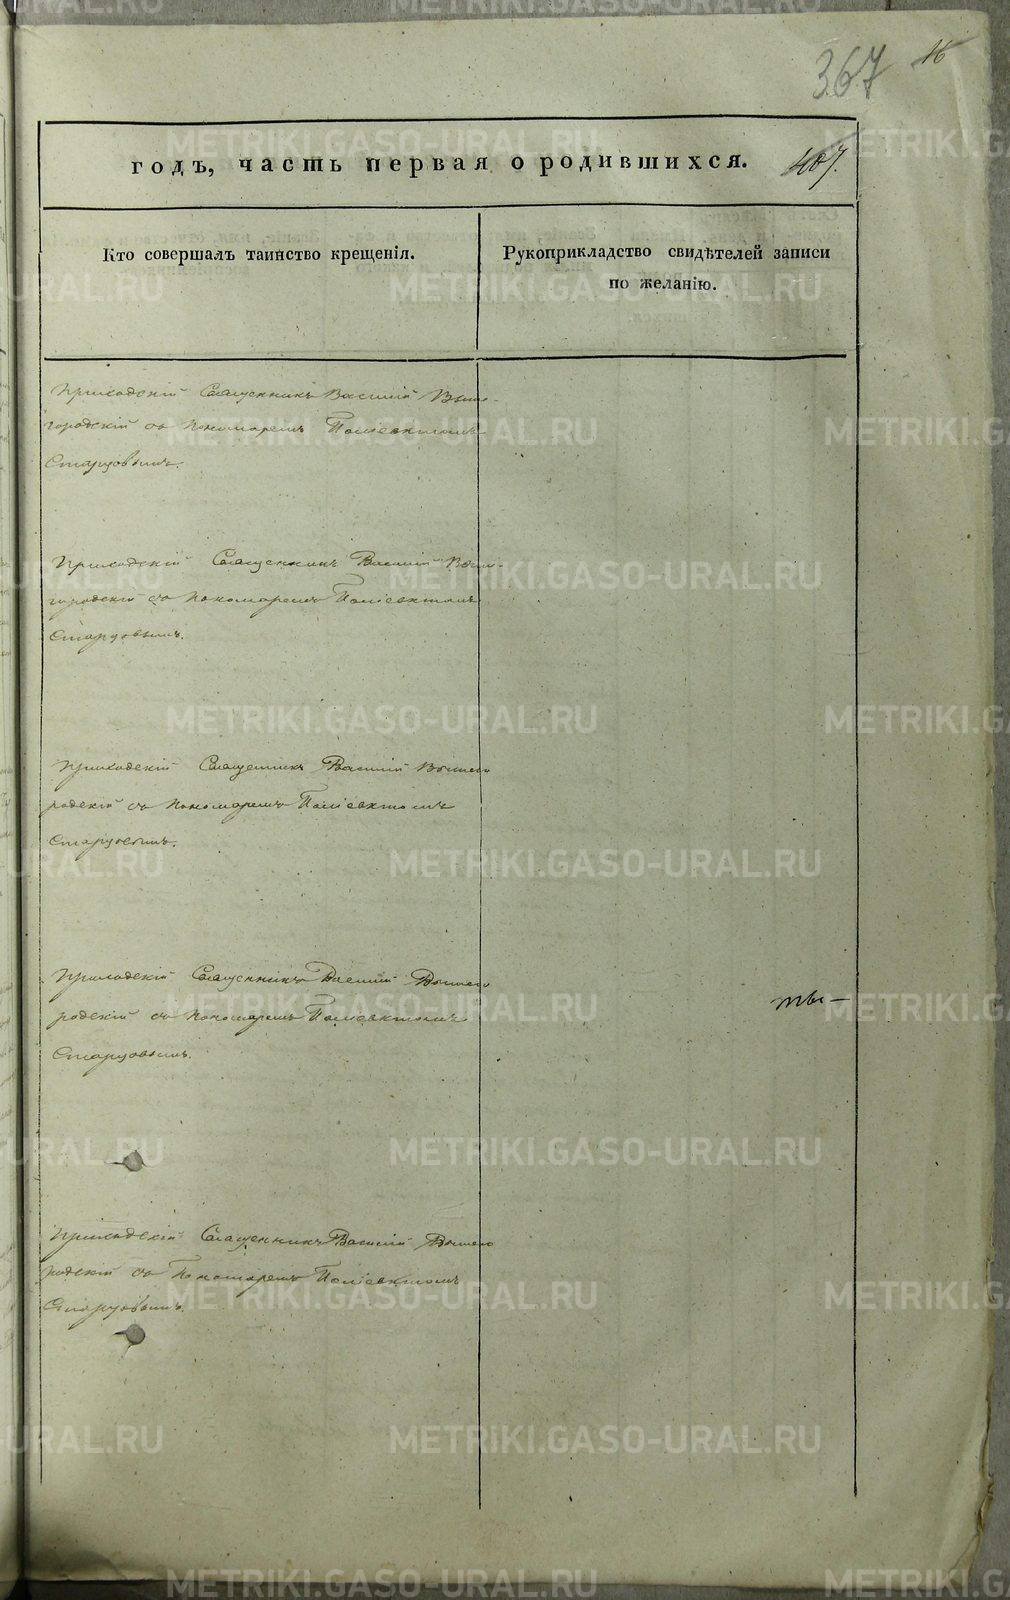 367
16
годъ, часть первая о родившихся. 407.
Кто совершалъ таинство крещенія.
Рукоприкладство свидѣтелей записи
по желанію.
Приходскій Священникъ Василій Выше-
городскій съ Пономаремъ Поліевктомъ
Старцовымъ.
Приходскій Священникъ Василій Выше-
городскій съ Пономаремъ Поліевктомъ
Старцовымъ.
Приходскій Священникъ Василій Вышего
родскій съ Пономаремъ Поліевктомъ
Старцовымъ.
Приходскій Священникъ Василій Вышего
родскій съ Пономаремъ Поліевктомъ
Старцовымъ.
Приходскій Священникъ Василій Вышего
родскій съ Пономаремъ Поліевктомъ
Старцовымъ.
METRIKI.GASO-URAL.RU